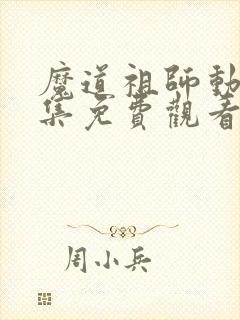 魔道祖師動
集免費觀看
周小兵